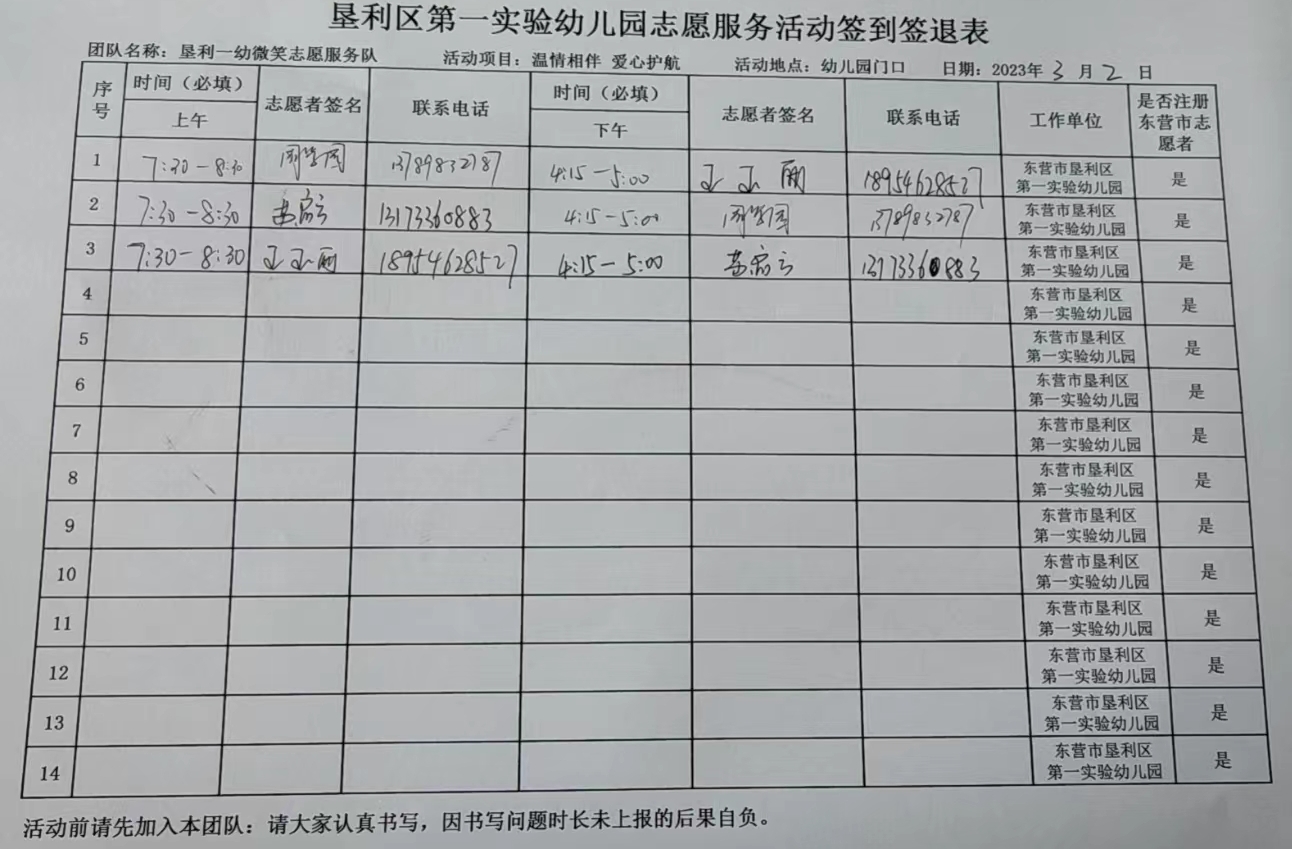 垦利区第一实验幼儿园志愿服务活动签到签退表
团队名称：垦利一幼微笑志愿服务队 活动项目：温情相伴 爱心护航 活动地点：幼儿园门口 日期：2023年3月2日
序号 时间（必填） 志愿者签名 联系电话 时间（必填） 志愿者签名 联系电话 工作单位 是否注册东营市志愿者
上午 下午
1 7:30-8:30 13789832787 4:15-5:00 王玉丽 18954628527 东营市垦利区第一实验幼儿园 是
2 7:30-8:30 13173360883 4:15-5:00 13789832787 东营市垦利区第一实验幼儿园 是
3 7:30-8:30 王玉丽 18954628527 4:15-5:00 13173360883 东营市垦利区第一实验幼儿园 是
4 东营市垦利区第一实验幼儿园 是
5 东营市垦利区第一实验幼儿园 是
6 东营市垦利区第一实验幼儿园 是
7 东营市垦利区第一实验幼儿园 是
8 东营市垦利区第一实验幼儿园 是
9 东营市垦利区第一实验幼儿园 是
10 东营市垦利区第一实验幼儿园 是
11 东营市垦利区第一实验幼儿园 是
12 东营市垦利区第一实验幼儿园 是
13 东营市垦利区第一实验幼儿园 是
14 东营市垦利区第一实验幼儿园 是
活动前请先加入本团队：请大家认真书写，因书写问题时长未上报的后果自负。